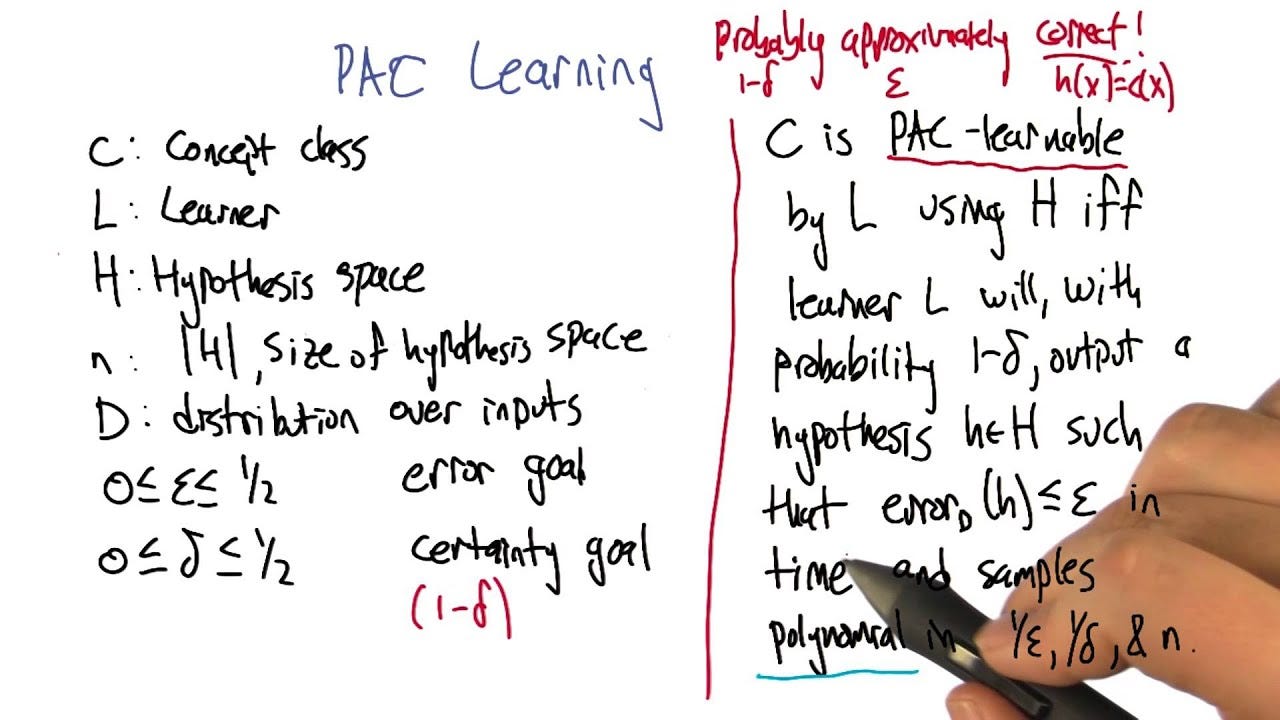 PAC Learning
probably approximately correct!
1-δ ε h(x)=c(x)
C: Concept class
L: Learner
H: Hypothesis space
n: |H|, size of hypothesis space
D: distribution over inputs
0≤ε≤1/2 error goal
0≤δ≤1/2 certainty goal
(1-δ)
C is PAC-learnable
by L using H iff
learner L will, with
probability 1-δ, output a
hypothesis h∈H such
that error_D(h)≤ε in
time and samples
polynomial in 1/ε, 1/δ, & n.